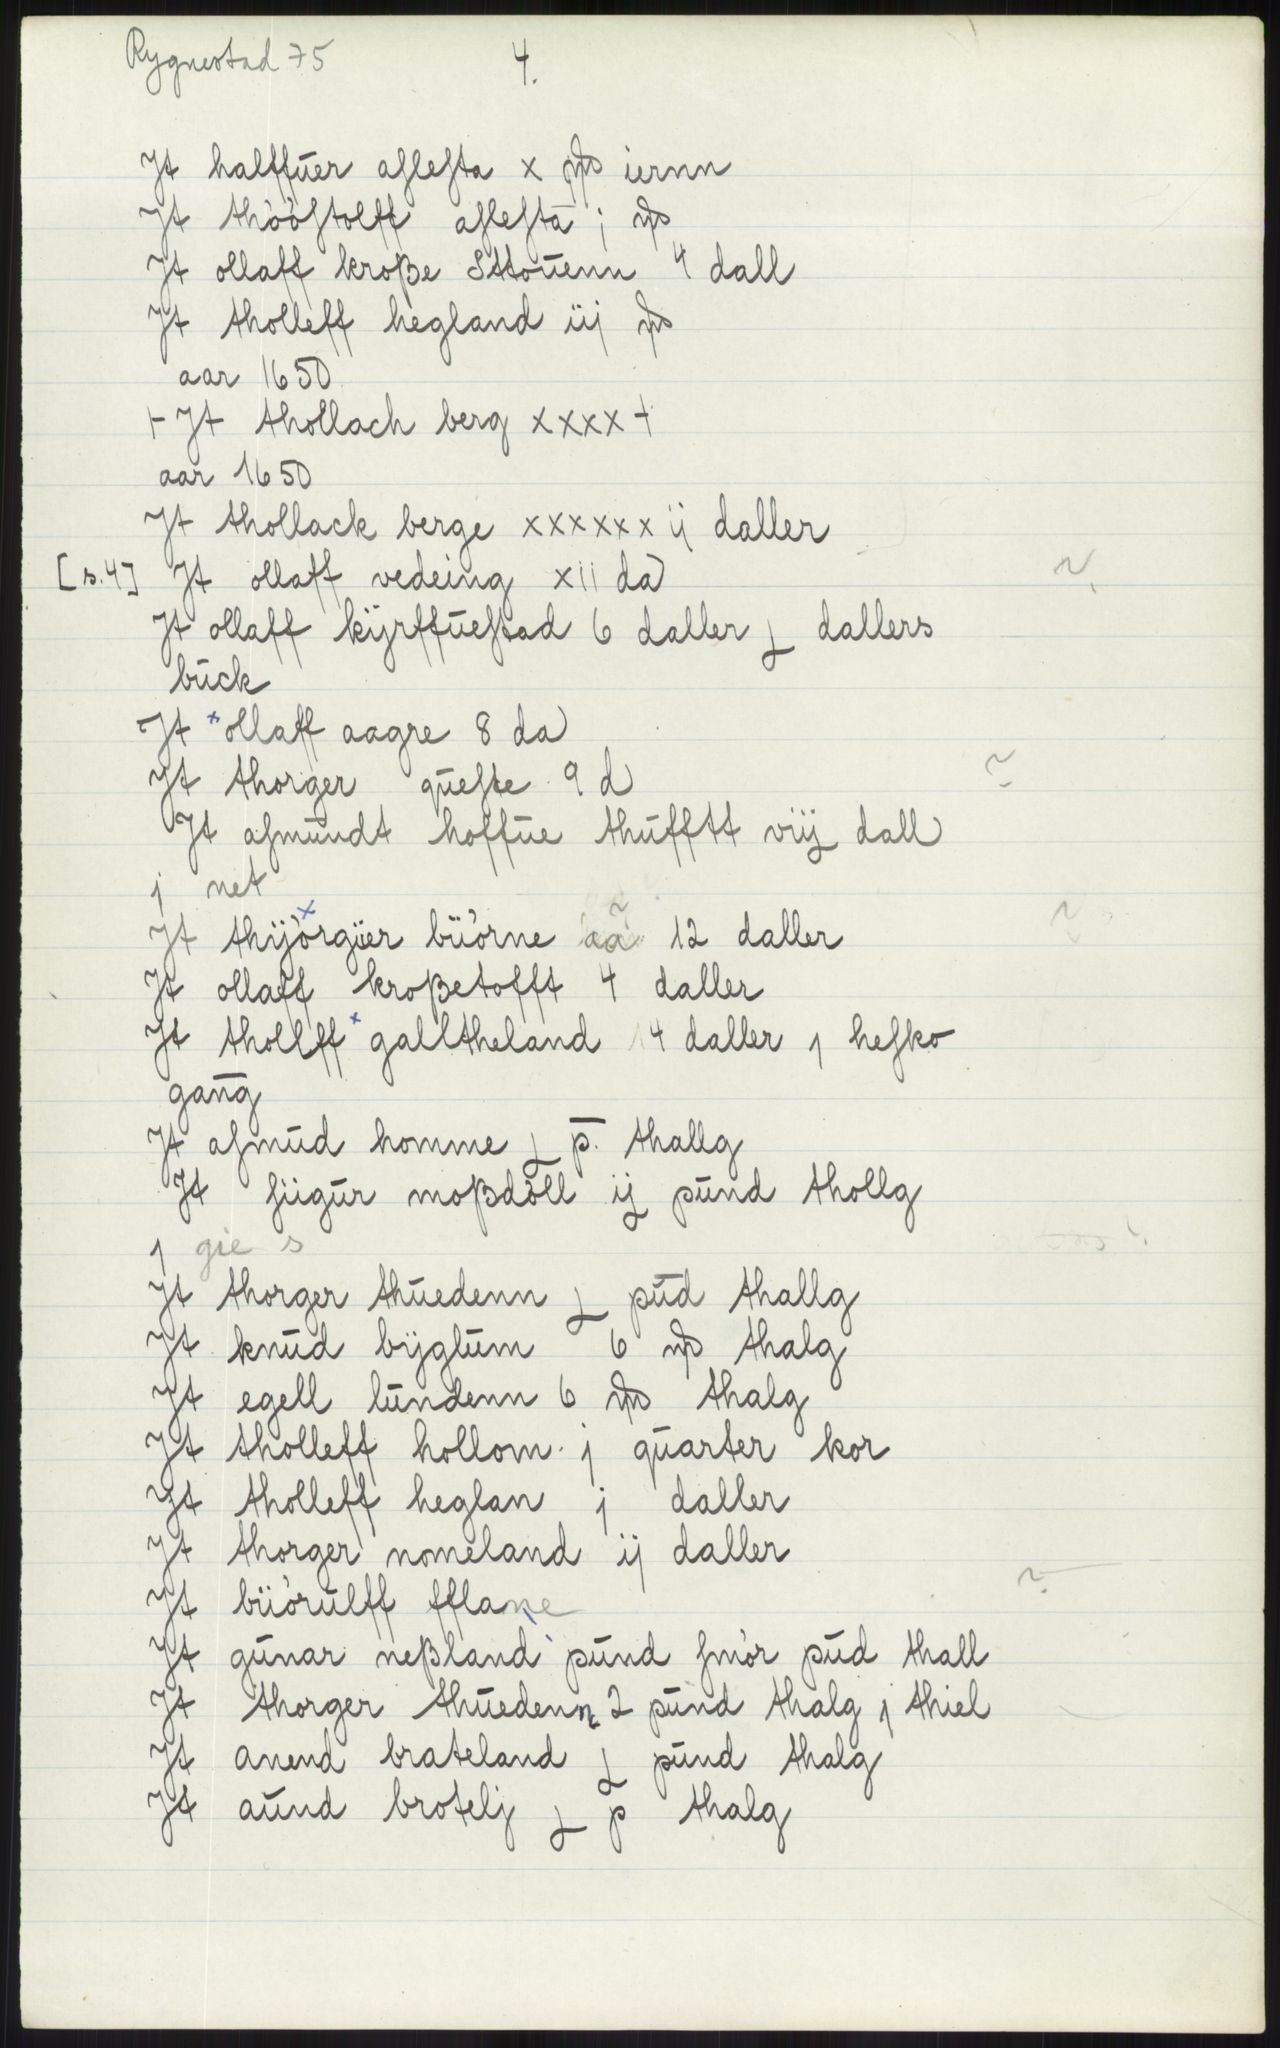 Rygnestad 75
4.
Jt halffūer aſleſta x ℔ iernn
Jt thòòſtolff aſleſta j ℔
Jt ollaff kroße Sttoūenn 4 dall
Jt tholleff hegland iij ℔
aar 1650
+ Jt thollach berg xxxx +
aar 1650
Jt thollack berge xxxxxx ij daller
[s.4] Jt ollaff vedeing xii da
Jt ollaff kÿrffūeſtad 6 daller ʆ dallers
būck
Jt x ollaff aagre 8 da
Jt thorger qūeſte 9 d
Jt aſmūndt hoffūe thūfftt viij dall
j net
Jt thÿòrgüer büòrne aa 12 daller
Jt ollaff kroßetofft 4 daller
Jt thollff x galltheland 4 daller j heſko
gang
Jt aſmūd homme ʆ p̄. thallg
Jt ſiigūr moßdòll ij pūnd thollg
j gie s
Jt thorger thūedenn ʆ pūd thallg
Jt knūd bÿglūm 6 ℔ thalg
Jt egell lūndenn 6 ℔ thalg
Jt tholleff hollom j qūarter kor
Jt tholleff heglan j daller
Jt thorger nomeland ij daller
Jt büòrūlff fflane
Jt gūnar neßland pūnd ſmòr pūd thall
Jt thorger thūedenn 2 pūnd thalg j thiel
Jt anend brateland ʆ pūnd thalg
Jt aūnd brotelj ʆ p thalg